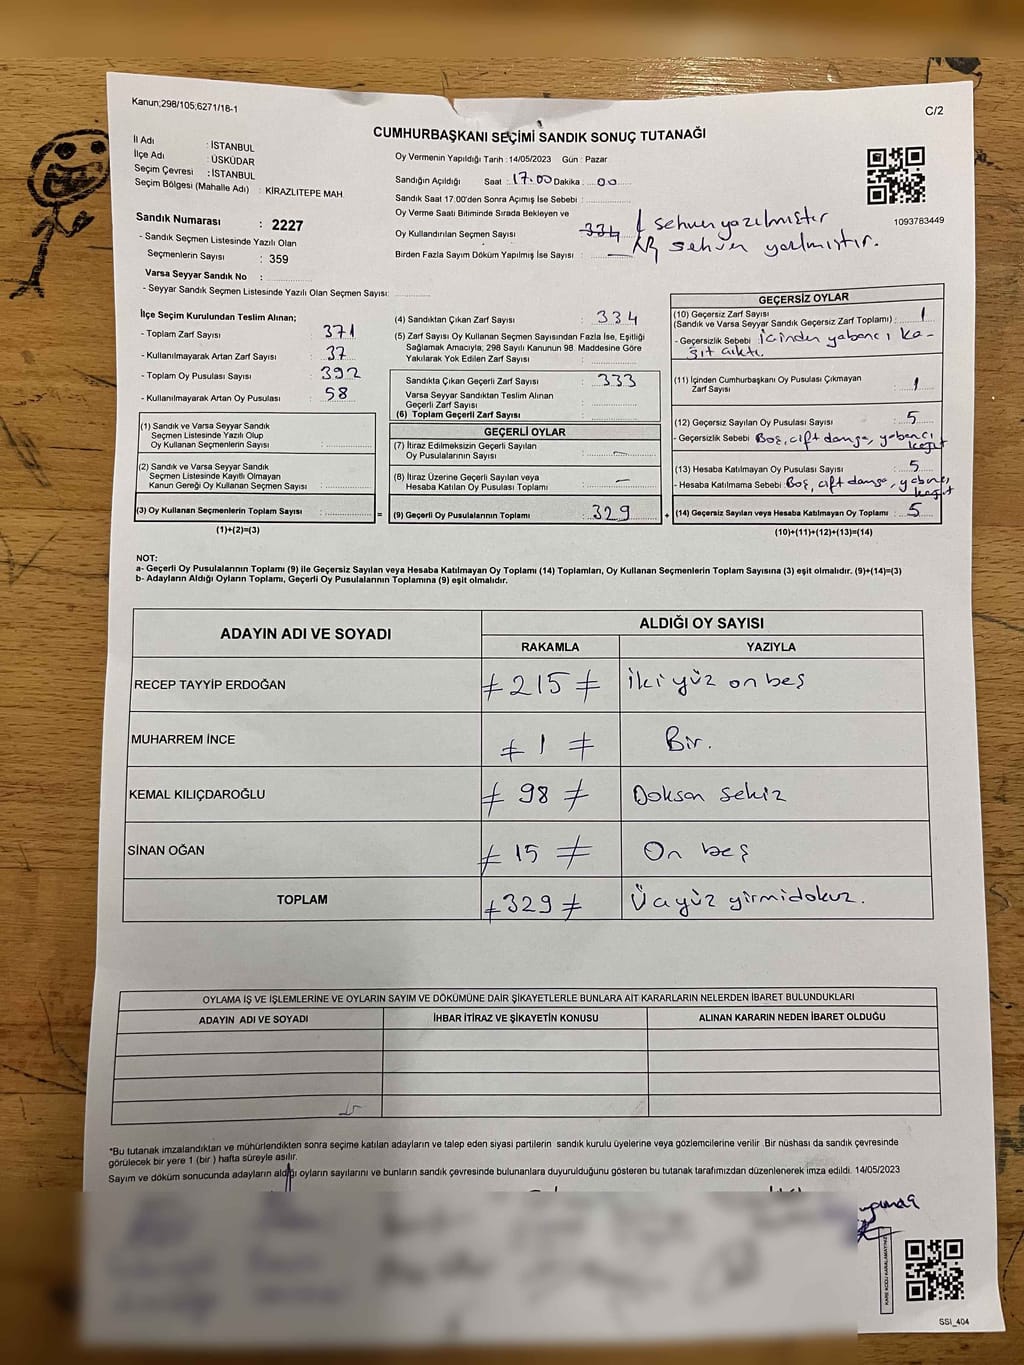 Kanun;298/105;6271/18-1
C/2
CUMHURBAŞKANI SEÇİMİ SANDIK SONUÇ TUTANAĞI
İl Adı : İSTANBUL
İlçe Adı : ÜSKÜDAR
Seçim Çevresi : İSTANBUL
Seçim Bölgesi (Mahalle Adı) : KİRAZLITEPE MAH.
Sandık Numarası : 2227
- Sandık Seçmen Listesinde Yazılı Olan
Seçmenlerin Sayısı : 359
Varsa Seyyar Sandık No :
- Seyyar Sandık Seçmen Listesinde Yazılı Olan Seçmen Sayısı:
Oy Vermenin Yapıldığı Tarih : 14/05/2023 Gün : Pazar
Sandığın Açıldığı Saat : 17.00 Dakika : 00
Sandık Saat 17.00'den Sonra Açımış İse Sebebi :
Oy Verme Saati Bitiminde Sırada Bekleyen ve
Oy Kullandırılan Seçmen Sayısı : 334 sehven yazılmıştır
Birden Fazla Sayım Döküm Yapılmış İse Sayısı : — sehven yazılmıştır.
1093783449
İlçe Seçim Kurulundan Teslim Alınan;
- Toplam Zarf Sayısı : 371
- Kullanılmayarak Artan Zarf Sayısı : 37
- Toplam Oy Pusulası Sayısı : 392
- Kullanılmayarak Artan Oy Pusulası : 58
(1) Sandık ve Varsa Seyyar Sandık
Seçmen Listesinde Yazılı Olup
Oy Kullanan Seçmenlerin Sayısı :
(2) Sandık ve Varsa Seyyar Sandık
Seçmen Listesinde Kayıtlı Olmayan
Kanun Gereği Oy Kullanan Seçmen Sayısı :
(3) Oy Kullanan Seçmenlerin Toplam Sayısı :
(1)+(2)=(3)
=
(4) Sandıktan Çıkan Zarf Sayısı : 334
(5) Zarf Sayısı Oy Kullanan Seçmen Sayısından Fazla İse, Eşitliği
Sağlamak Amacıyla, 298 Sayılı Kanunun 98. Maddesine Göre
Yakılarak Yok Edilen Zarf Sayısı :
Sandıkta Çıkan Geçerli Zarf Sayısı : 333
Varsa Seyyar Sandıktan Teslim Alınan
Geçerli Zarf Sayısı :
(6) Toplam Geçerli Zarf Sayısı :
GEÇERLİ OYLAR
(7) İtiraz Edilmeksizin Geçerli Sayılan
Oy Pusulalarının Sayısı : —
(8) İtiraz Üzerine Geçerli Sayılan veya
Hesaba Katılan Oy Pusulası Toplamı : —
(9) Geçerli Oy Pusulalarının Toplamı : 329
+
GEÇERSİZ OYLAR
(10) Geçersiz Zarf Sayısı
(Sandık ve Varsa Seyyar Sandık Geçersiz Zarf Toplamı) : 1
- Geçersizlik Sebebi : içinden yabancı ka-
ğıt çıktı.
(11) İçinden Cumhurbaşkanı Oy Pusulası Çıkmayan
Zarf Sayısı : 1
(12) Geçersiz Sayılan Oy Pusulası Sayısı : 5
- Geçersizlik Sebebi : Boş, çift damga, yabancı
kağıt
(13) Hesaba Katılmayan Oy Pusulası Sayısı : 5
- Hesaba Katılmama Sebebi : Boş, çift damga, yabancı
kağıt
(14) Geçersiz Sayılan veya Hesaba Katılmayan Oy Toplamı : 5
(10)+(11)+(12)+(13)=(14)
NOT:
a- Geçerli Oy Pusulalarının Toplamı (9) ile Geçersiz Sayılan veya Hesaba Katılmayan Oy Toplamı (14) Toplamları, Oy Kullanan Seçmenlerin Toplam Sayısına (3) eşit olmalıdır. (9)+(14)=(3)
b- Adayların Aldığı Oyların Toplamı, Geçerli Oy Pusulalarının Toplamına (9) eşit olmalıdır.
ADAYIN ADI VE SOYADI
ALDIĞI OY SAYISI
RAKAMLA YAZIYLA
RECEP TAYYİP ERDOĞAN ≠ 215 ≠ İki yüz on beş
MUHARREM İNCE ≠ 1 ≠ Bir.
KEMAL KILIÇDAROĞLU ≠ 98 ≠ Doksan sekiz
SİNAN OĞAN ≠ 15 ≠ On beş
TOPLAM ≠ 329 ≠ Üçyüz yirmidokuz.
OYLAMA İŞ VE İŞLEMLERİNE VE OYLARIN SAYIM VE DÖKÜMÜNE DAİR ŞİKAYETLERLE BUNLARA AİT KARARLARIN NELERDEN İBARET BULUNDUKLARI
ADAYIN ADI VE SOYADI İHBAR İTİRAZ VE ŞİKAYETİN KONUSU ALINAN KARARIN NEDEN İBARET OLDUĞU
*Bu tutanak imzalandıktan ve mühürlendikten sonra seçime katılan adayların ve talep eden siyasi partilerin sandık kurulu üyelerine veya gözlemcilerine verilir .Bir nüshası da sandık çevresinde
görülecek bir yere 1 (bir ) hafta süreyle asılır.
Sayım ve döküm sonucunda adayların aldığı oyların sayılarını ve bunların sandık çevresinde bulunanlara duyurulduğunu gösteren bu tutanak tarafımızdan düzenlenerek imza edildi. 14/05/2023
KARE KODU KARALAMAYINIZ
SSI_404